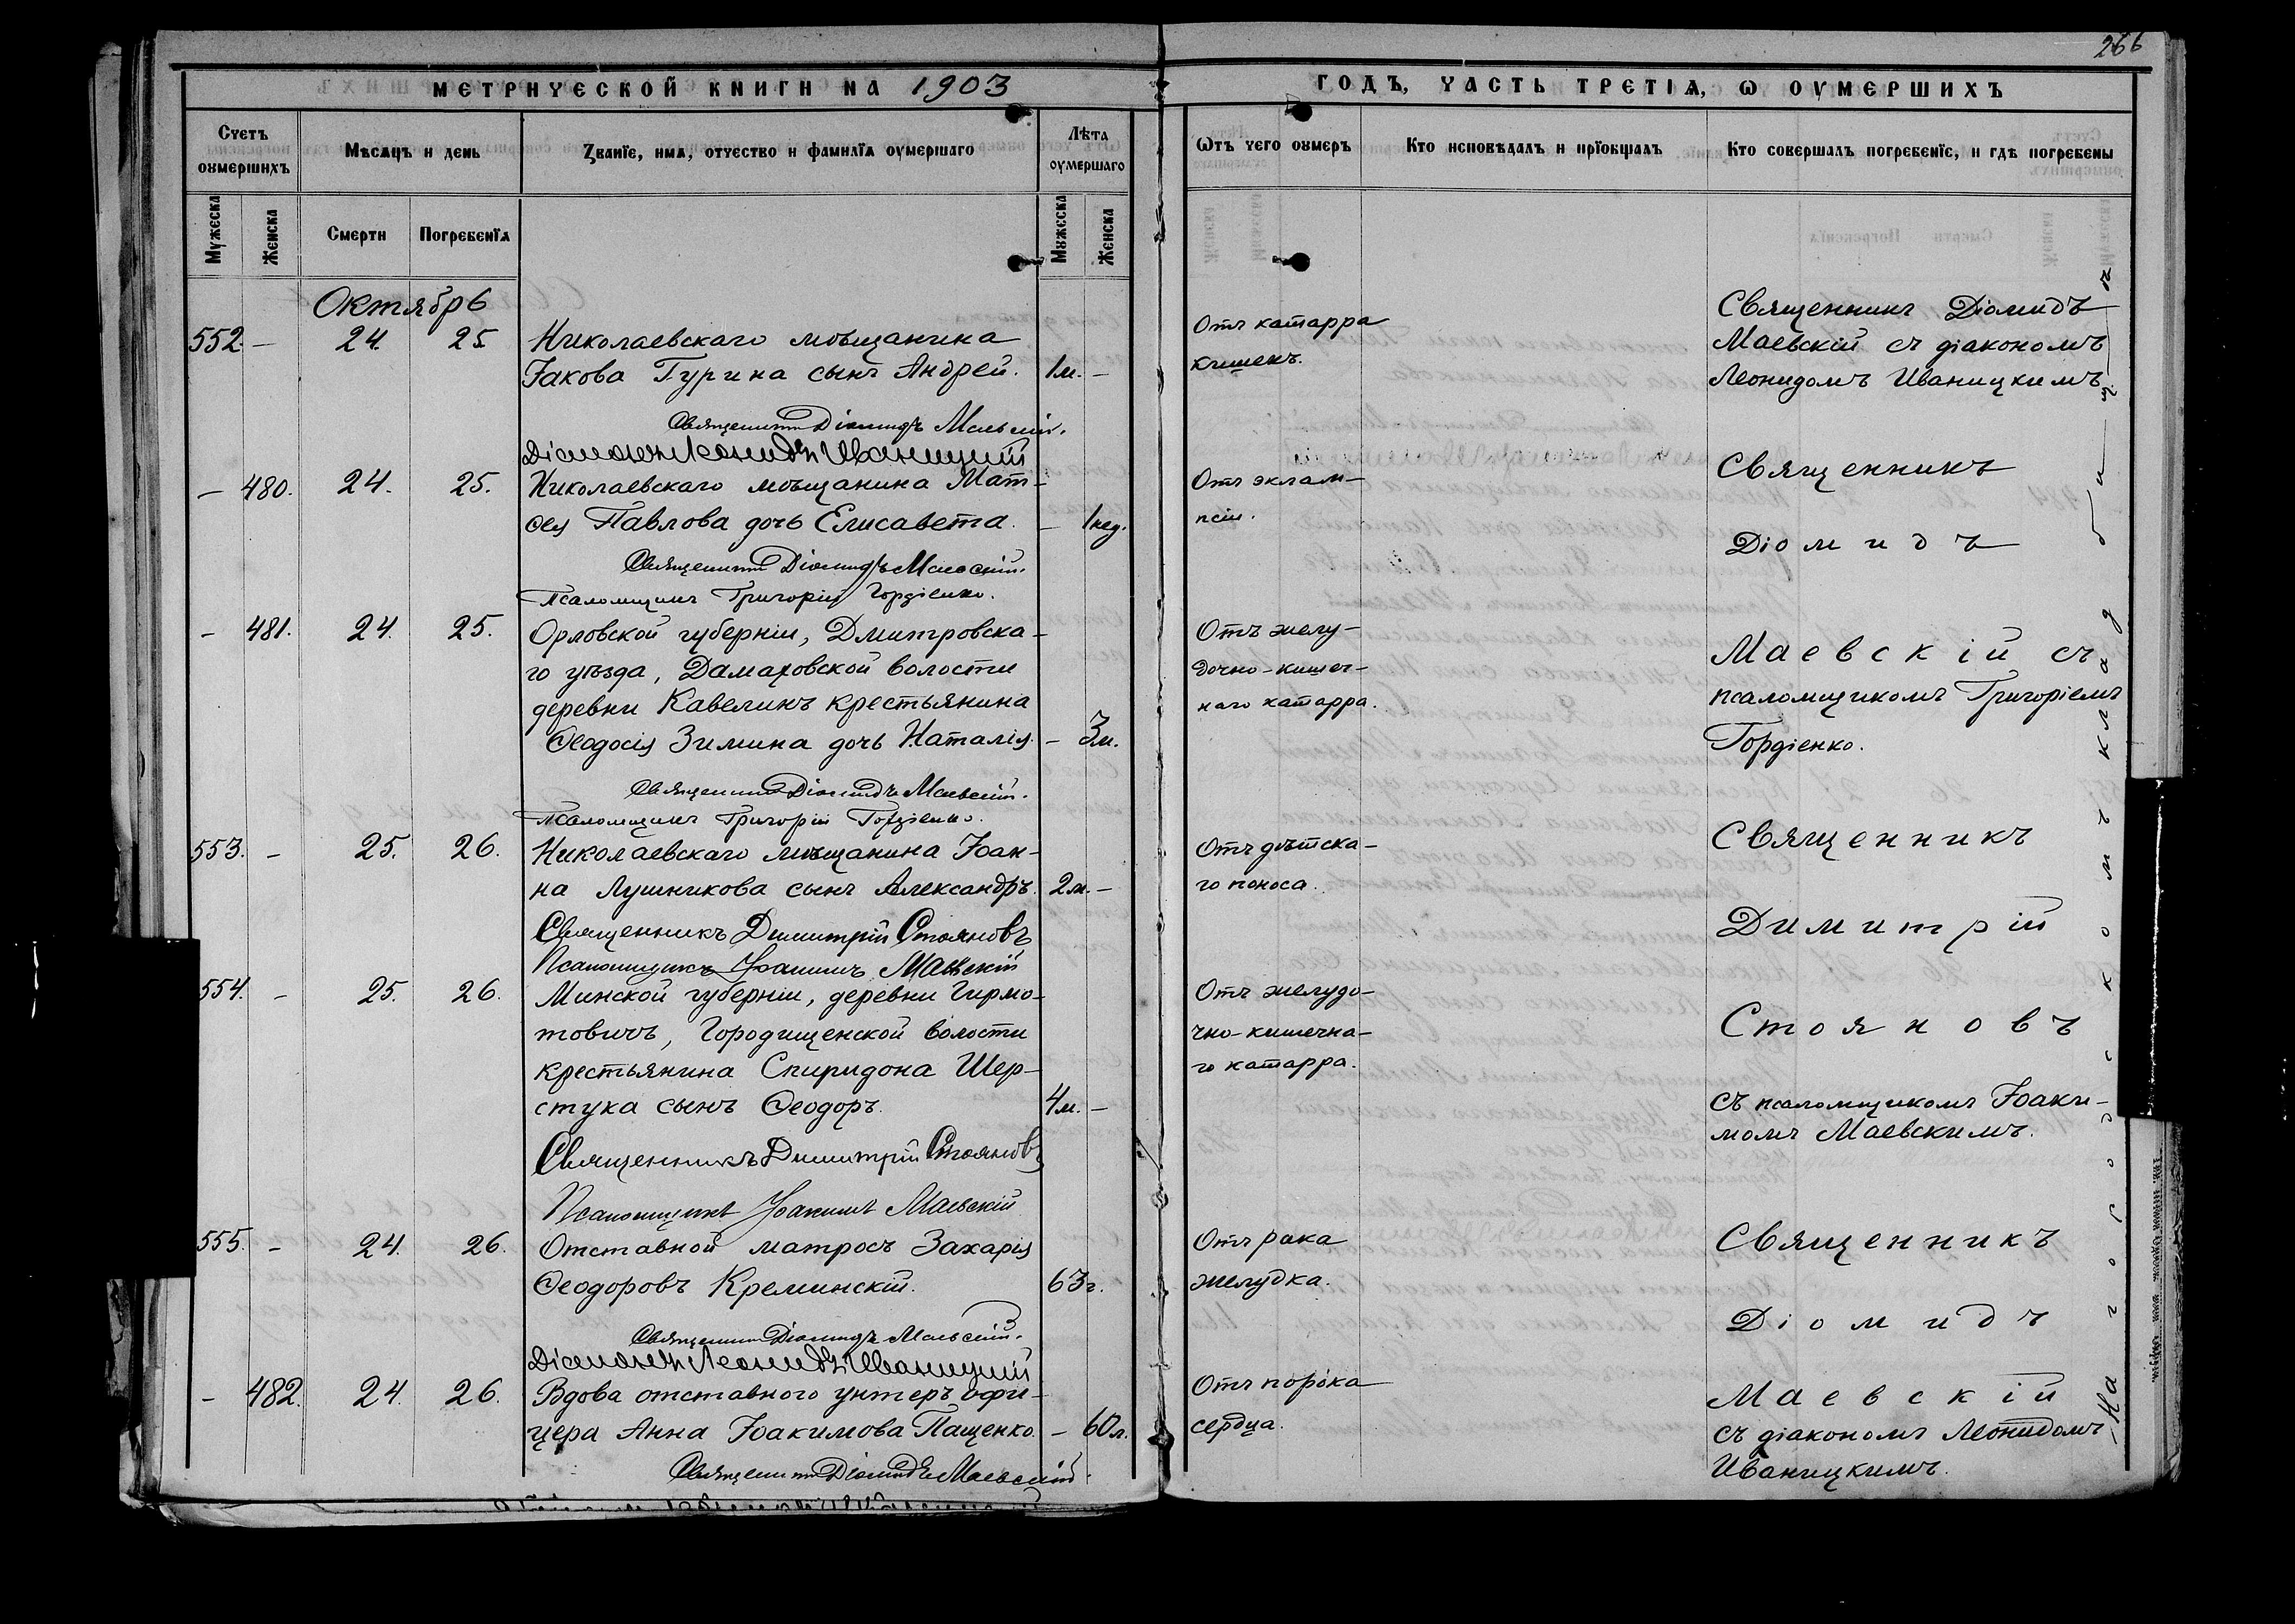 266
МЕТРИЧЕСКОЙ КНИГИ НА 1903 ГОДЪ, ЧАСТЬ ТРЕТІѦ, Ѡ ОУМЕРШИХЪ
Счетъ оумершихъ
Мѣсѧцъ и день
Званїе, имѧ, отчество и фамилїѧ оумершаго
Лѣта оумершаго
Ѿтъ чего оумеръ
Кто исповѣдалъ и прїобщалъ
Кто совершалъ погребенїе, и гдѣ погребены
Мужеска
Женска
Смерти
Погребенїѧ
Мужеска
Женска
Октябрь
552. — 24. 25 Николаевскаго мѣщанина
Іакова Гурина сынъ Андрей. 1м. —
Отъ катарра
кишекъ.
Священникъ Діомидъ
Маевскій съ діакономъ
Леонидомъ Иваницкимъ
Священникъ Діомидъ Маевскій.
Діаконъ Леонидъ Иваницкій
— 480. 24. 25. Николаевскаго мѣщанина Мат-
ѳея Павлова дочь Елисавета. — 1 нед.
Отъ эклам-
псіи.
Священникъ
Діомидъ
Священникъ Діомидъ Маевскій.
Псаломщикъ Григорій Гордіенко.
— 481. 24. 25. Орловской губерніи, Дмитровска-
го уѣзда, Домаховской волости
деревни Кавелинъ крестьянина
Ѳеодосія Зимина дочь Наталія. — 3м.
Отъ желу-
дочно-кишеч-
наго катарра.
Маевскій съ
псаломщикомъ Григоріемъ
Гордіенко.
Священникъ Діомидъ Маевскій.
Псаломщикъ Григорій Гордіенко.
553. — 25. 26. Николаевскаго мѣщанина Іоан-
на Лушникова сынъ Александръ. 2м. —
Отъ дѣтска-
го поноса.
Священникъ
Димитрій
Священникъ Димитрій Стояновъ
Псаломщикъ Іоакимъ Маевскій
554. — 25. 26. Минской губерніи, деревни Гирмо-
товичъ, Городищенской волости
крестьянина Спиридона Шер-
стука сынъ Ѳеодоръ. 4м. —
Отъ желудо-
чно-кишечна-
го катарра.
Стояновъ
съ псаломщикомъ Іоаки-
момъ Маевскимъ.
Священникъ Димитрій Стояновъ
Псаломщикъ Іоакимъ Маевскій
555. — 24. 26. Отставной матросъ Захарія
Ѳеодоровъ Креминскій. 63г.
Отъ рака
желудка.
Священникъ
Діомидъ
Священникъ Діомидъ Маевскій.
Діаконъ Леонидъ Иваницкій
— 482. 24. 26. Вдова отставного унтеръ офи-
цера Анна Іоакимова Пащенко. — 60л.
Отъ порока
сердца.
Маевскій
съ діакономъ Леонидомъ
Иваницкимъ.
Священникъ Діомидъ Маевскій.
На городскомъ кладбищѣ